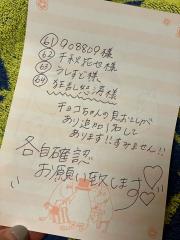 61 908809様
62 千秋花也様
63 うしすど様
64 狂喜怒涛様
チョコちゃんの見おとしが
あり追加1名して
あります!!すみません!!
各自確認
お願い致します♡♡